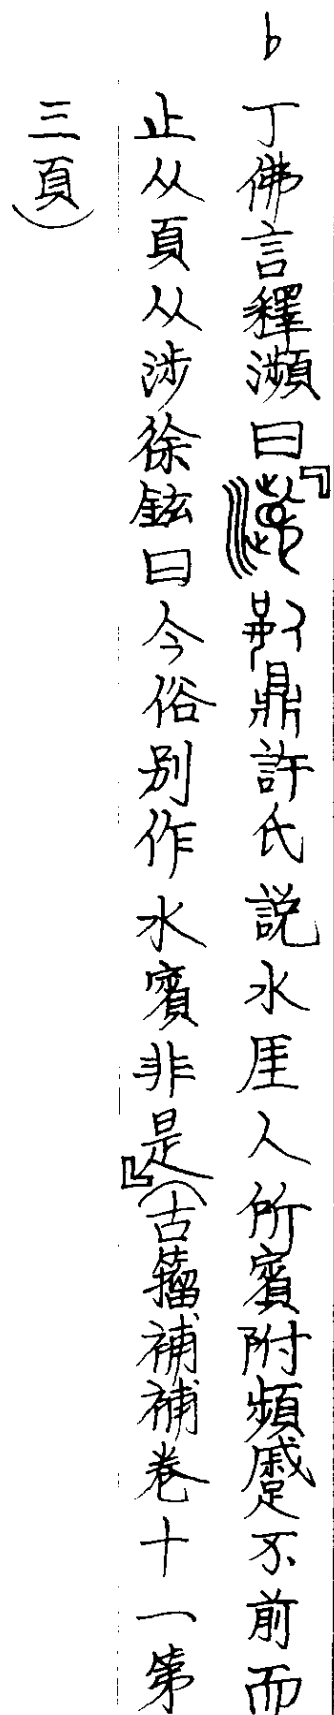 b
丁佛言釋瀕曰『鼎許氏説水厓人所賓附頻蹙不前而
止从頁从涉徐鉉曰今俗別作水賓非是』(古籀補補卷十一第
三頁)